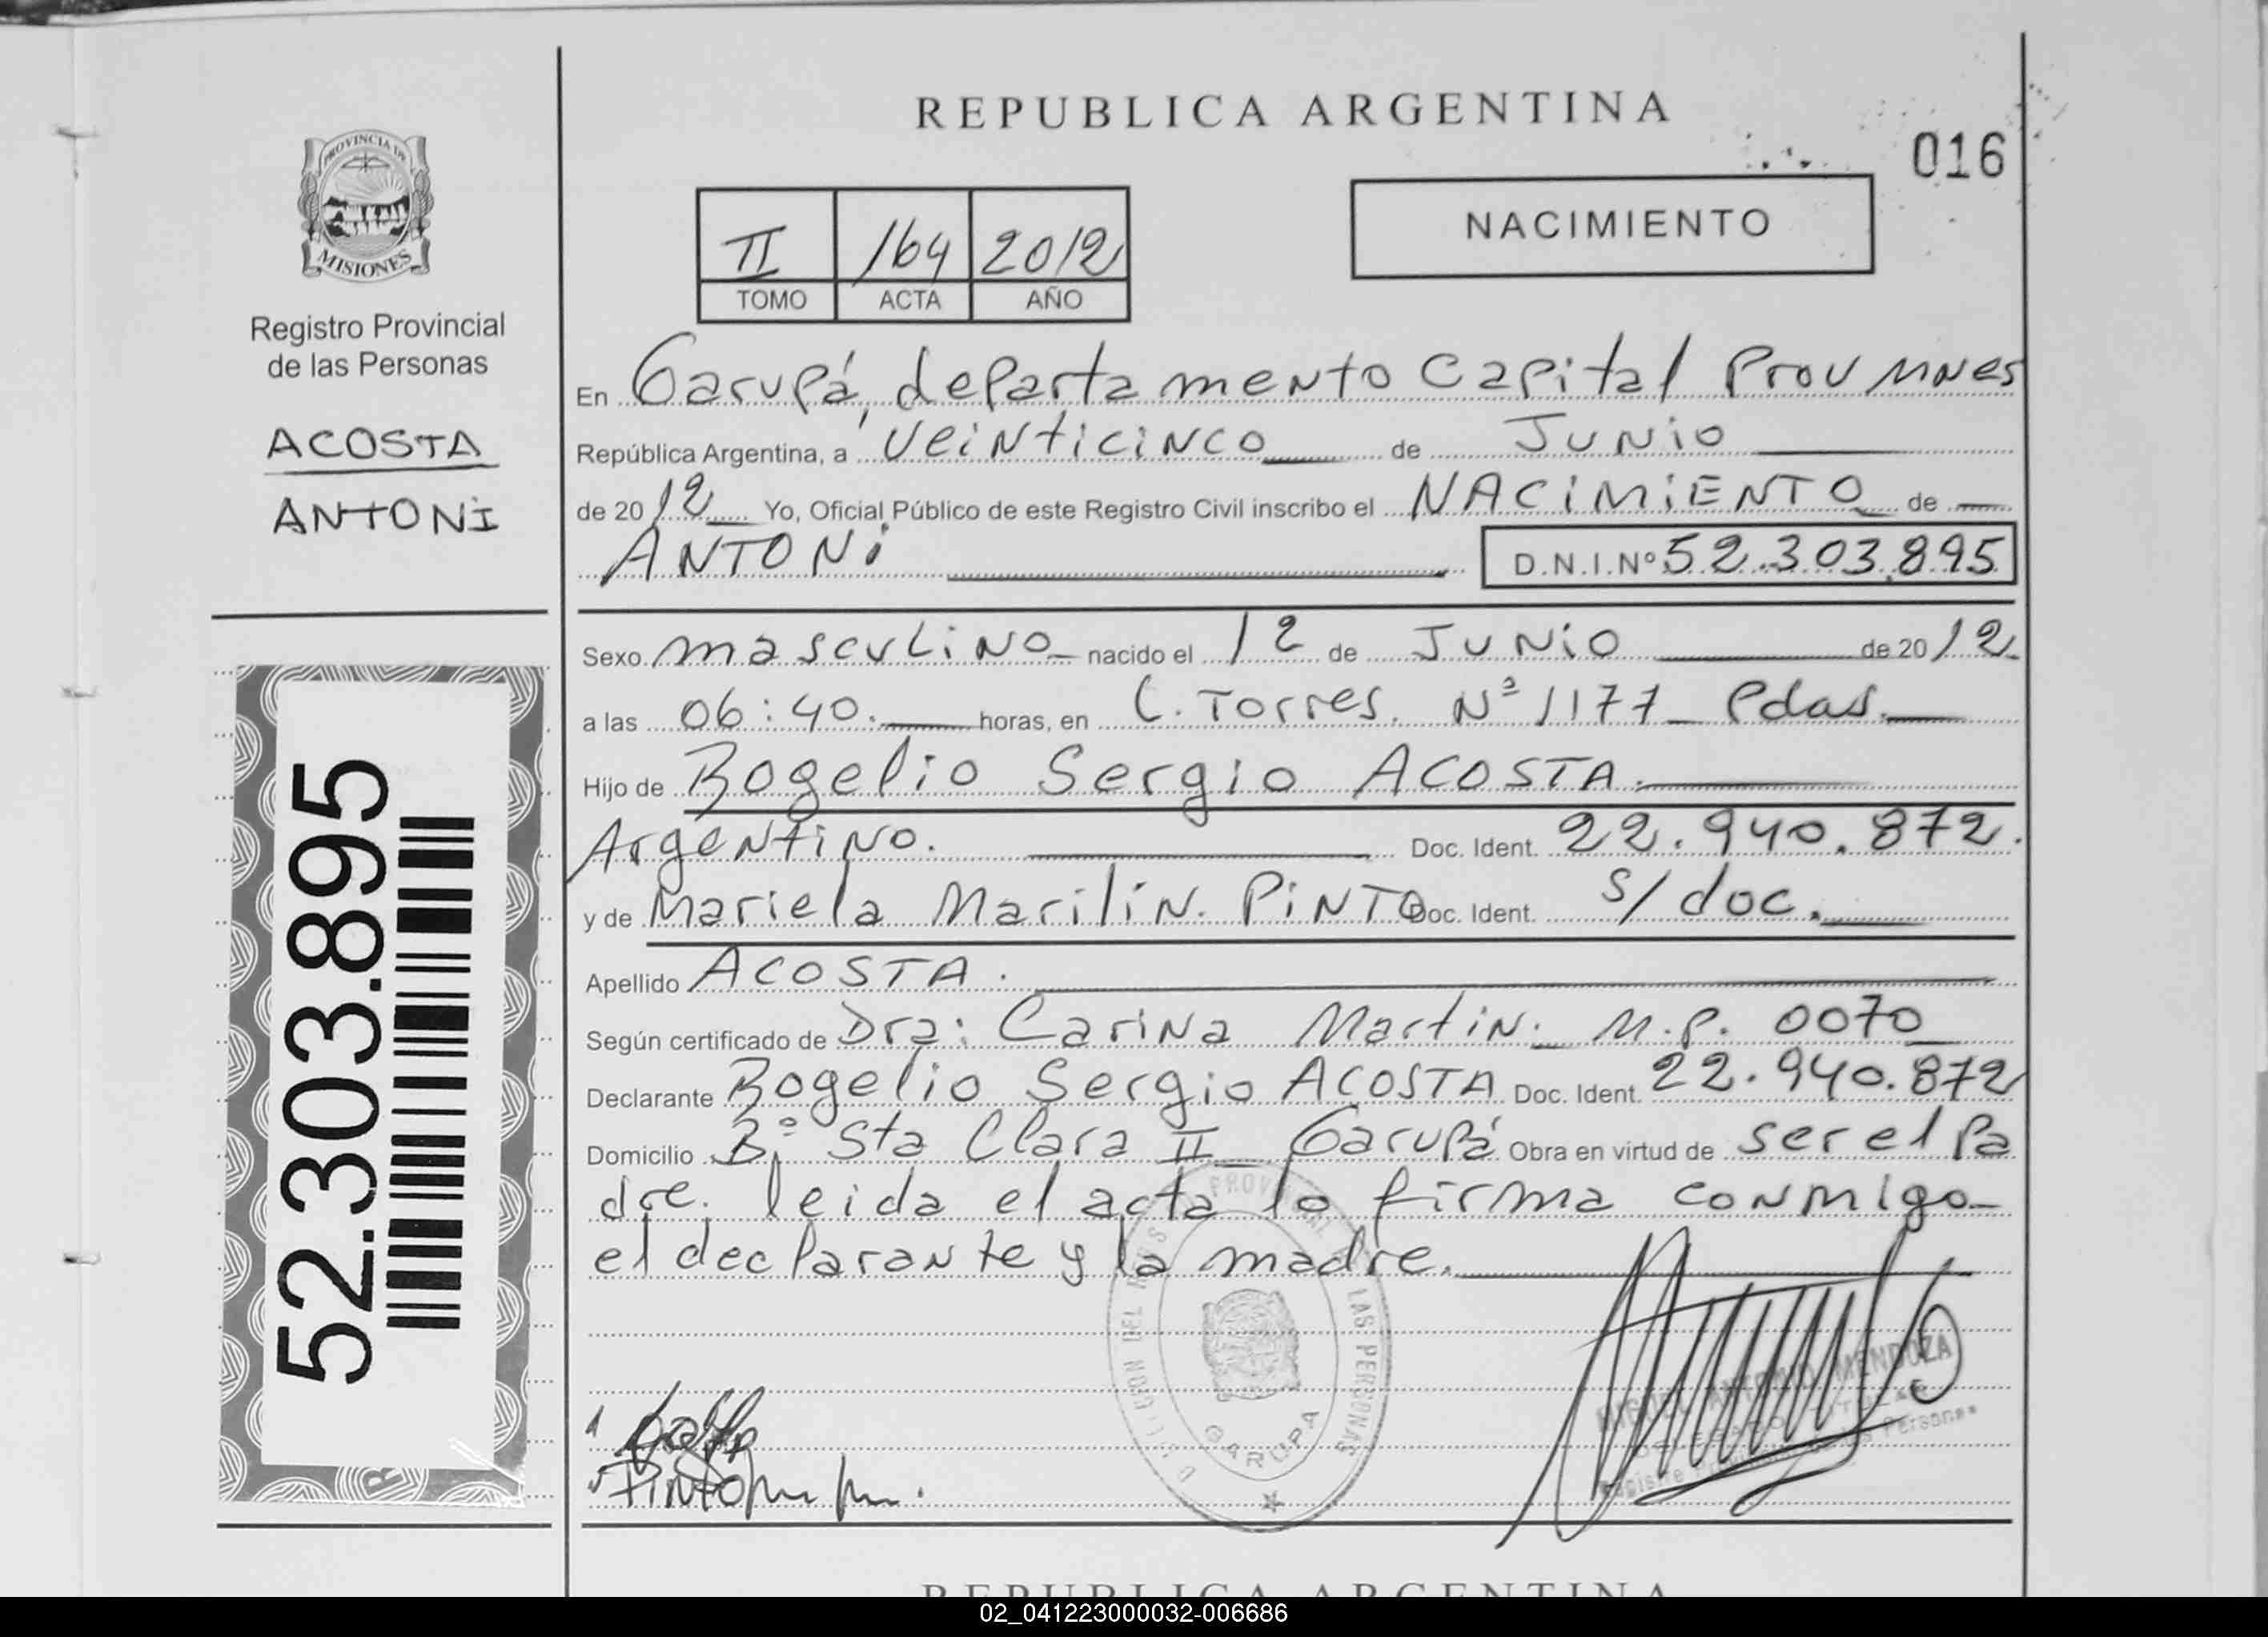 REPUBLICA ARGENTINA
016
PROVINCIA DE
MISIONES
Registro Provincial
de las Personas
ACOSTA
ANTONI
52.303.895
II 164 2012
TOMO ACTA AÑO
NACIMIENTO
En Garupá, departamento Capital Prov Mnes
República Argentina, a Veinticinco de Junio
de 2012 Yo, Oficial Público de este Registro Civil inscribo el NACIMIENTO de
ANTONI D.N.I.Nº 52.303.895
Sexo masculino nacido el 12 de JUNIO de 2012
a las 06:40. horas, en C. Torres. Nº 1177 Pdas.
Hijo de Rogelio Sergio ACOSTA.
Argentino. Doc. Ident. 22.940.872.
y de Mariela Marilin. PINTO Doc. Ident. s/doc.
Apellido ACOSTA.
Según certificado de Dra: Carina Martin. M.P. 0070
Declarante Rogelio Sergio ACOSTA Doc. Ident. 22.940.872
Domicilio Bº Sta Clara II Garupá Obra en virtud de ser el pa
dre. leida el acta lo firma conmigo
el declarante y la madre.
LAS PERSONAS
GARUPA
MIGUEL ANTONIO MENDOZA
Pinto
REPUBLICA ARGENTINA
02_041223000032-006686